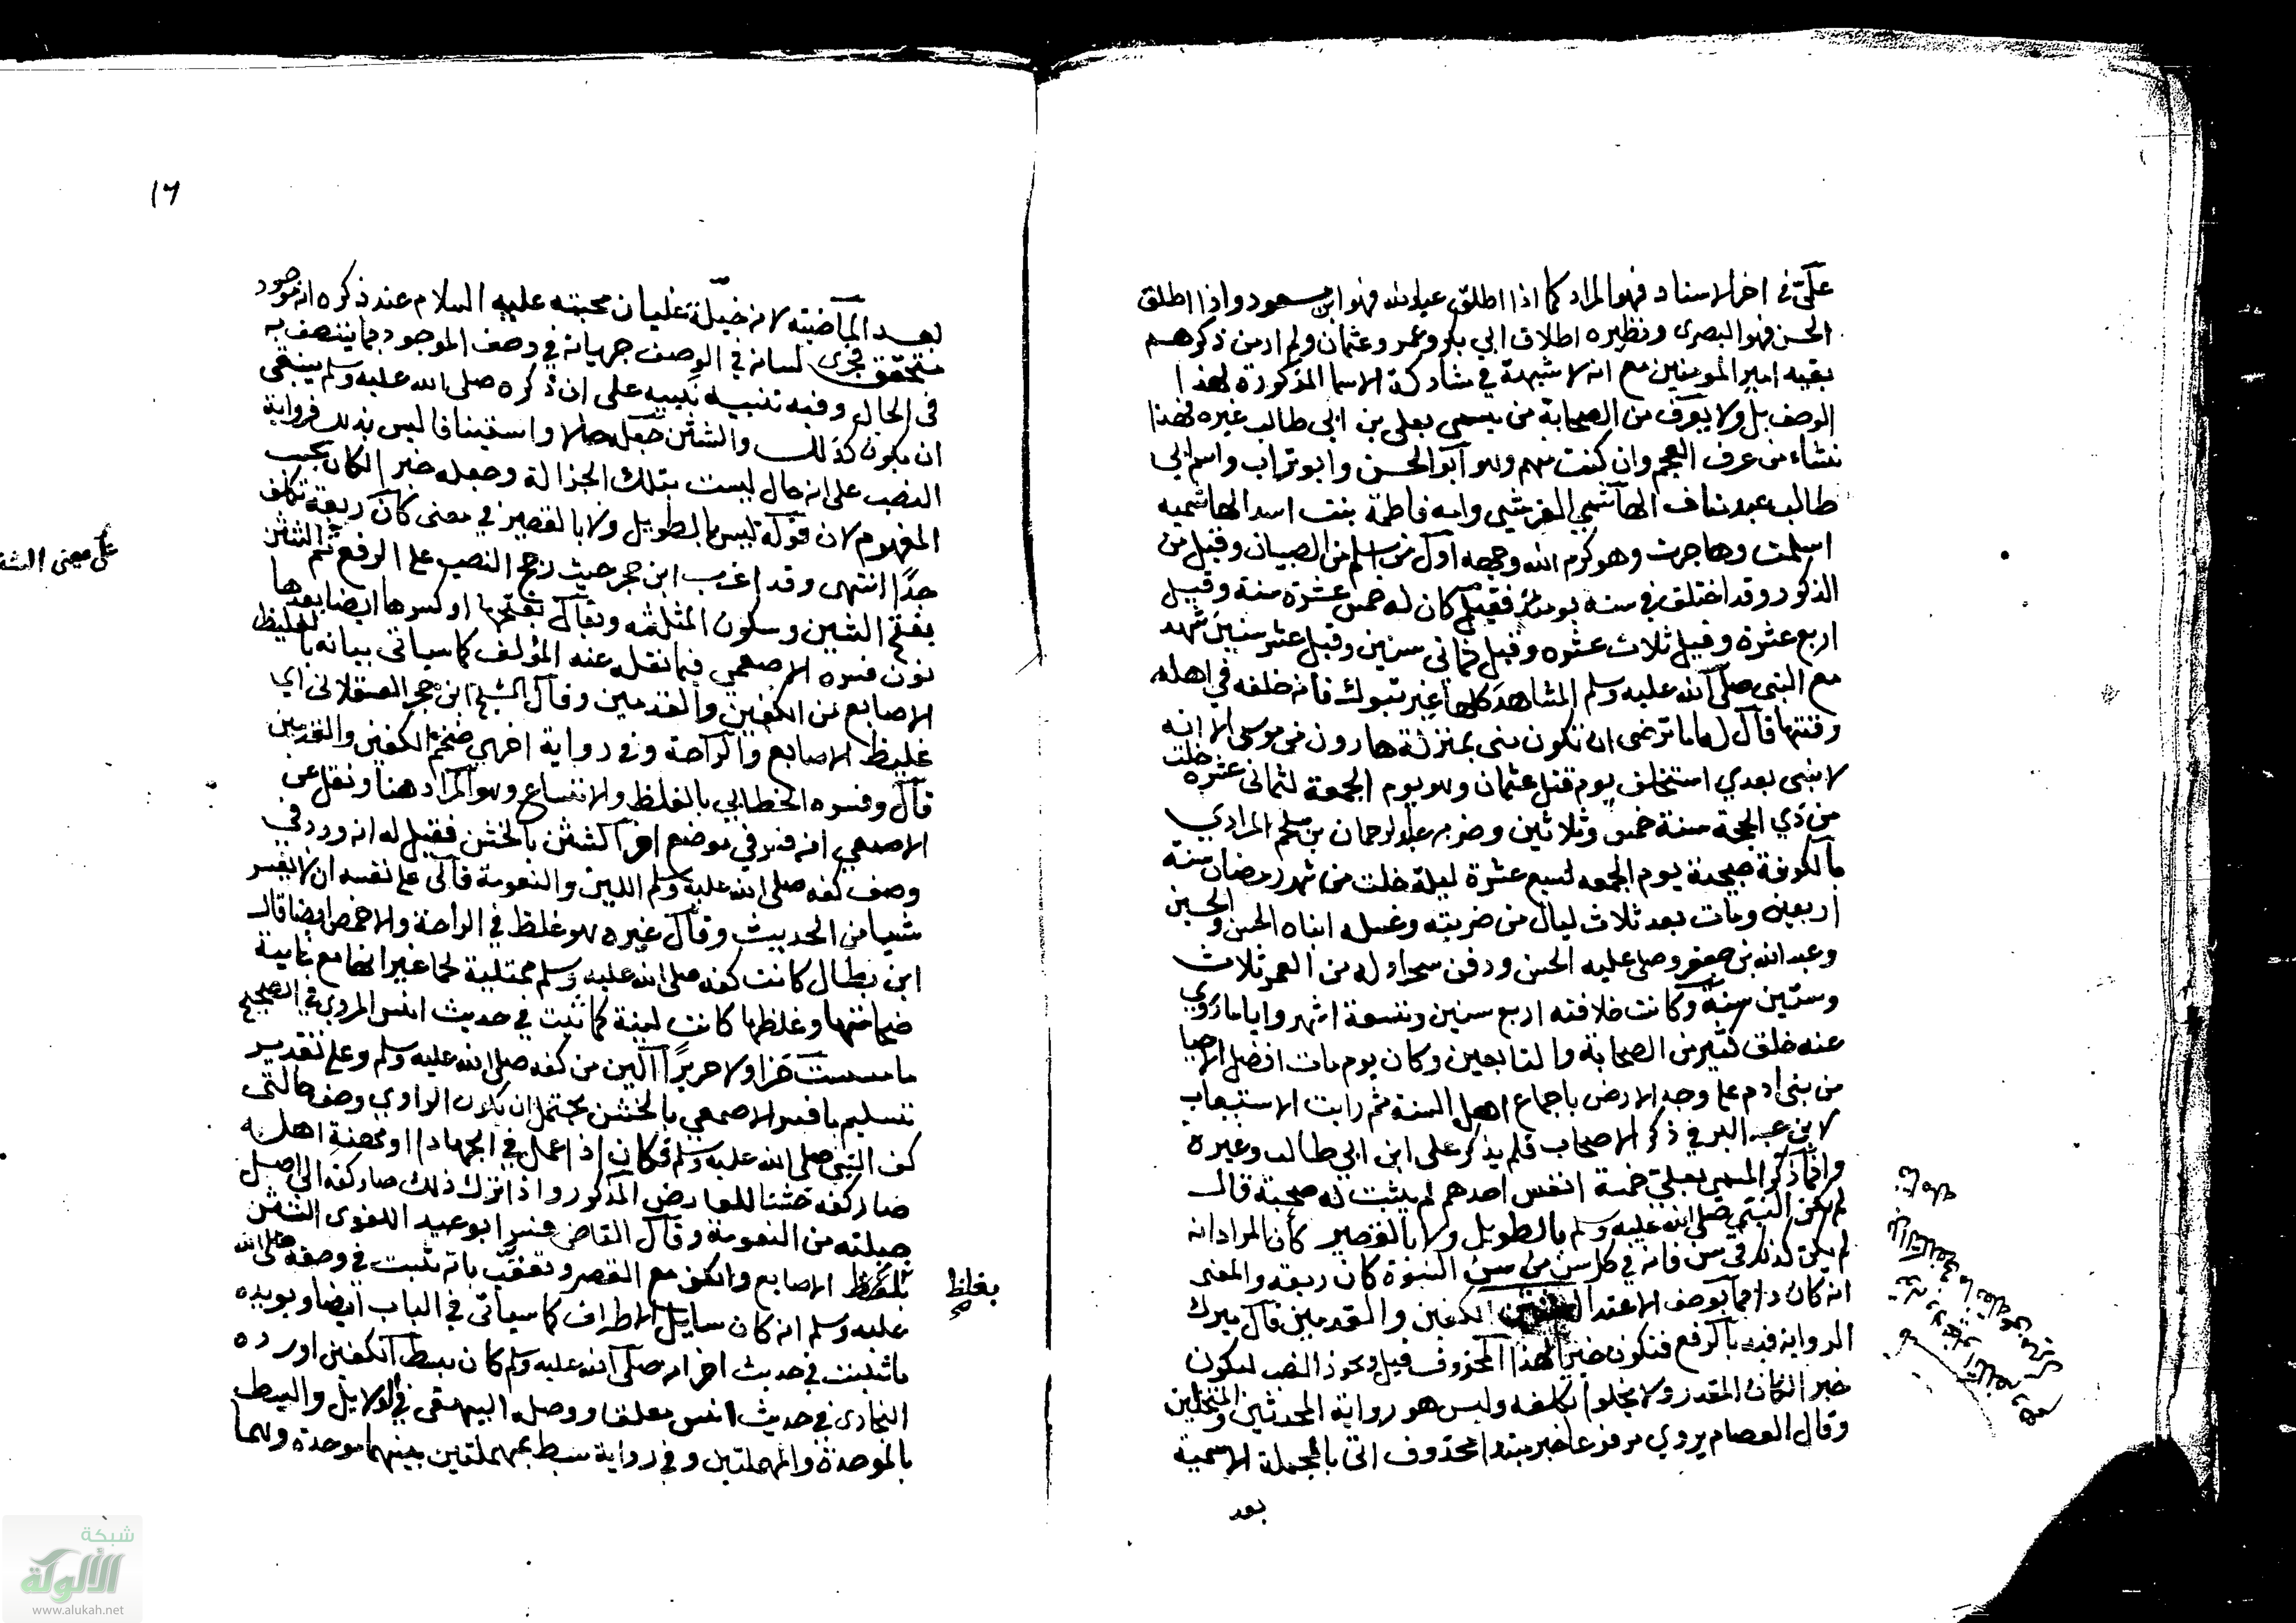 علي في اخر الاسناد فهو المراد كما اذا اطلق عبد الله فهو ابن مسعود واذا اطلق
الحسن فهو البصرى ونظيره اطلاق ابي بكر وعمر وعثمان ولم ار من ذكرهم
بقيد امير المومنين مع انه لا شبهة في مشاركة الاسما المذكورة لهذا
الوصف بل ولا يعرف من الصحابة من يسمى بعلى بن ابى طالب غيره فهذا
نشاء من عرف العجم وان كنت منهم وهو ابو الحسن وابو تراب واسم ابى
طالب عبد مناف الهاشمي القرشي وامه فاطمة بنت اسد الهاشميه
اسلمت وهاجرت وهو كرم الله وجهه اول من اسلم من الصبيان وقيل من
الذكور وقد اختلف في سنه يومئذ فقيل كان له خمس عشرة سنة وقيل
اربع عشرة وقيل ثلاث عشره وقيل ثمانى سنين وقيل عشر سنين شهد
مع النبى صلى الله عليه وسلم المشاهد كلها غير تبوك فانه خلفه في اهله
وقتها قال له اما ترضى ان تكون منى بمنزلة هارون من موسى الا انه
لا نبى بعدي استخلف يوم قتل عثمان وهو يوم الجمعة لثمانى عشرة خلت
من ذي الحجة سنة خمس وثلاثين وضربه عبد الرحمان بن ملجم المرادي
بالكوفة صبيحة يوم الجمعه لسبع عشرة ليلة خلت من شهر رمضان سنة
اربعين ومات بعد ثلاث ليال من ضربته وغسله ابناه الحسن والحسين
وعبد الله بن جعفر وصلى عليه الحسن ودفن سحرا وله من العمر ثلاث
وستين سنة وكانت خلافته اربع سنين وتسعة اشهر واياما روي
عنه خلق كثير من الصحابة والتابعين وكان يوم مات افضل الاحيا
من بنى ادم على وجه الارض باجماع اهل السنة ثم رايت الاستيعاب
لابن عبد البر في ذكر الاصحاب فلم يذكر على ابن ابي طالب وغيره
وانما ذكر المسمى بعلي خمسة انفس احدهم لم يثبت له صحبة قال
لم يكن النبي صلى الله عليه وسلم بالطويل ولا بالقصير كأن المراد انه
لم يكن كذلك في سن فانه في كل سن من سن النبوة كان ربعة والمعنى
انه كان دائما بوصف الاعتدال الكفين والقدمين قال ميرك
الرواية فيه بالرفع فتكون خبر لهذا المحذوف قيل ويجوز النصب ليكون
خبر الكان المقدر ولا يخلوا تكلفه وليس هو رواية المحدثين
وقال العصام يروي مرفوعا خبر مبتدا محذوف اتى بالجملة الاسمية
بعد
١٦
بعد الماضية لانه خيلة غليان محبته عليه السلام عند ذكره انه موجود
متحقق فجرى لسانه في الوصف جريانه في وصف الموجود بما يتصف به
في الحال وفيه تنبيه نبيه على ان ذكره صلى الله عليه وسلم ينبغي
ان يكون كذلك والشثن جعله حالا واستينافا ليس بذلك فرواية
النصب على انه حال ليست بتلك الجزالة وجعله خبر الكان بحسب
المفهوم لان قوله ليس بالطويل ولا بالقصير في معنى كان ربعة تكلف
جدا انتهى وقد اغرب ابن حجر حيث رجح النصب على الرفع ثم الشثن
بفتح الشين وسكون المثلثة ويقال بفتحها او كسرها ايضا بعدها
نون فسره الاصمعي فيما نقله عنه المؤلف كما سياتى بيانه بالغليظ
الاصابع من الكفين والقدمين وقال الشيخ ابن حجر العسقلانى اي
غليظ الاصابع والراحة وفي رواية اخرى ضخم الكفين والقدمين
قال وفسره الخطابي بالغلظ والاتساع وهو المراد هنا ونقل عن
الاصمعي انه فسر في موضع اخر الشثن بالخشن فقيل له انه ورد في
وصف كفه صلى الله عليه وسلم اللين والنعومة فآلى على نفسه ان لا يفسر
شيا من الحديث وقال غيره هو غلظ في الراحة والاخمص ايضا قال
ابن بطال كانت كفه صلى الله عليه وسلم ممتلية لحما غير انها مع غاية
ضخامتها وغلظها كانت لينة كما ثبت في حديث انس المروي في الصحيح
ما مسست خزا ولا حريرا الين من كفه صلى الله عليه وسلم وعلى تقدير
تسليم ما فسر الاصمعي بالخشن يحتمل ان يكون الراوي وصف حالتى
كف النبي صلى الله عليه وسلم فكان اذا عمل في الجهاد او مهنة اهله
صار كفه خشنا للعارض المذكور واذا ترك ذلك صار كفه الى اصل
جبلته من النعومة وقال القاضي فسر ابو عبيد اللغوى الشثن
بغلظ الاصابع والكف مع القصر وتعقب بانه ثبت في وصفه صلى الله
عليه وسلم انه كان سايل الاطراف كما سياتى في الباب ايضا ويويده
ما ثبت في حديث اخر انه صلى الله عليه وسلم كان بسط الكفين اورده
البخارى في حديث انس معلقا ووصله البيهقى في الدلايل والبسط
بالموحدة والمهملتين وفي رواية سبط بمهملتين بينهما موحدة وهما
بغلظ
على معنى